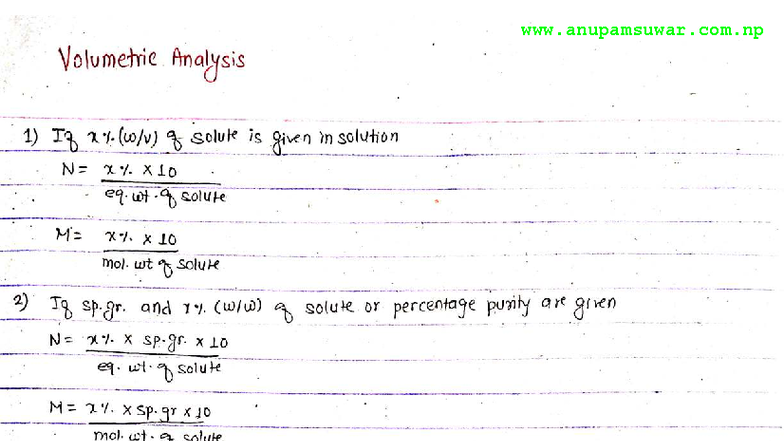 www.anupamsuwar.com.np
Volumetric Analysis
1) If x%(w/v) of solute is given in solution
N = x% × 10
eq. wt. of solute
M = x% × 10
mol. wt of solute
2) If sp.gr. and x% (w/w) of solute or percentage purity are given
N = x% × sp.gr. × 10
eq. wt. of solute
M = x% × sp.gr × 10
mol. wt. of solute